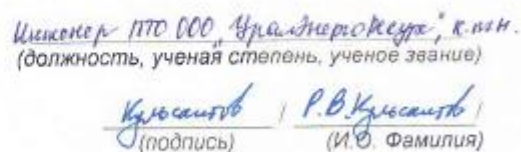 Инженер ПТО ООО "УралЭнергоРесурс", к.т.н.
(должность, ученая степень, ученое звание)
Кульсаитов / Р.В. Кульсаитов /
(подпись) (И.О. Фамилия)